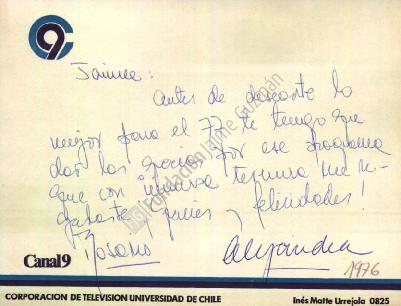 C9
Jaime:
Antes de desearte lo
mejor para el 77 te tengo que
dar las gracias por ese programa
que con inmensa ternura me re-
galaste, y felicidades!
Canal 9
Alejandra
1976
CORPORACION DE TELEVISION UNIVERSIDAD DE CHILE
Inés Matte Urrejola 0825
Fundación Jaime Guzmán